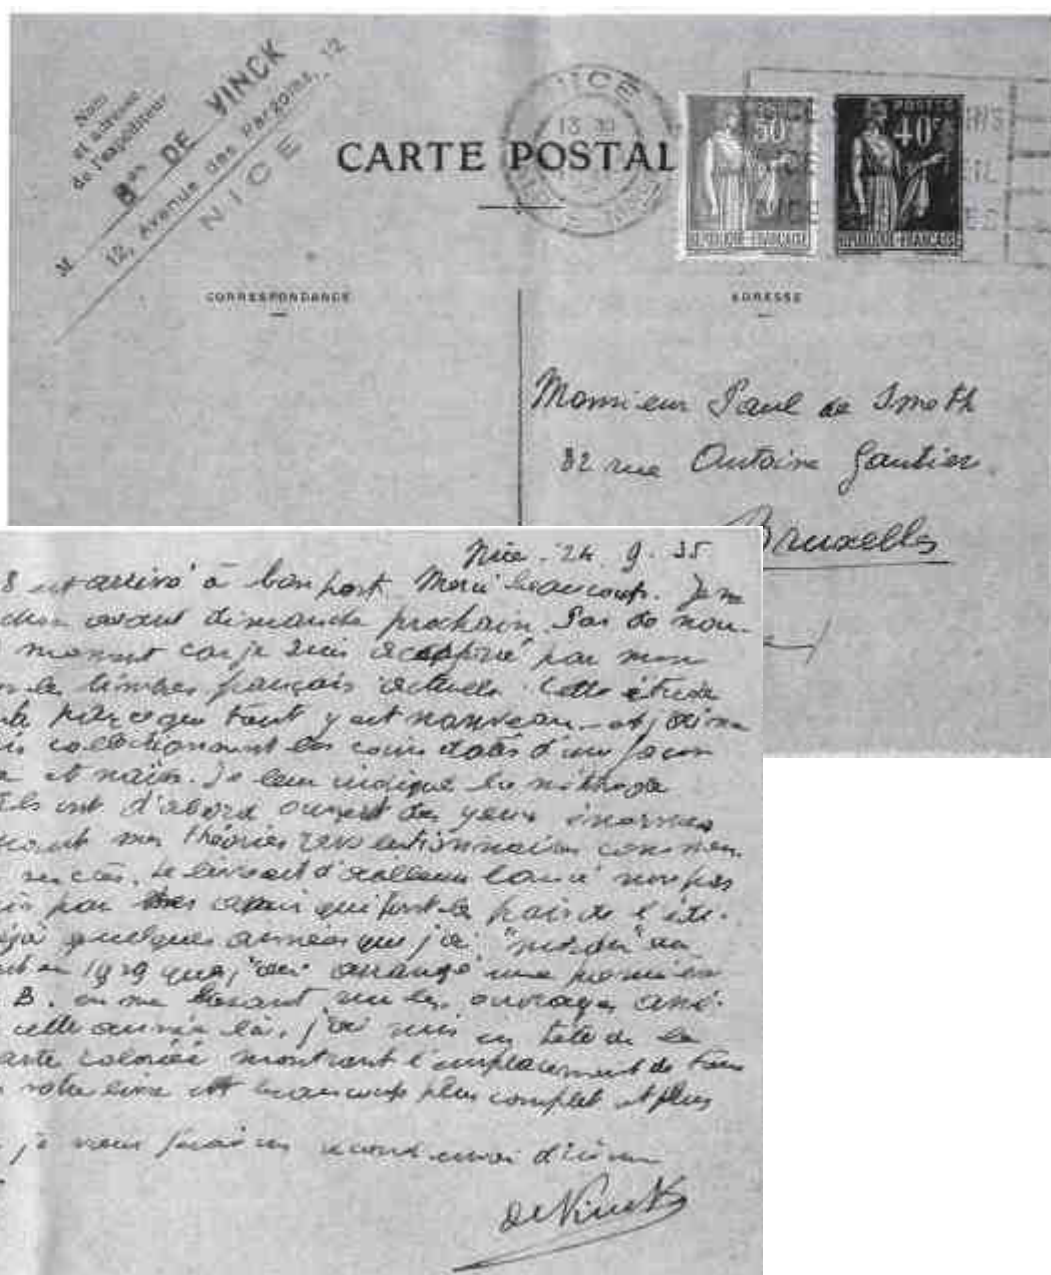 Nom
et adresse
de l'expéditeur
M Bon DE VINCK
12, Avenue des Parzoine, 12
NICE
CARTE POSTAL
NICE
13 30
POSTES
50c
REPUBLIQUE-FRANCAISE
POSTES
40c
REPUBLIQUE-FRANCAISE
CORRESPONDANCE
ADRESSE
Monsieur Paul de Smeth
82 rue Antoine Gautier
Bruxelles
Nice - 24 9. 35
8 est arrivé à bon port. Merci beaucoup. Je ne
avant dimanche prochain. Pas de nou-
moment car je suis par mon
les timbres français actuels. Cette étude
parce que tout y est nouveau - et j'
collectionnant les coins datés d'une façon
et . Je leur indique la méthode
Ils ont d'abord ouvert des yeux énormes
mes théories révolutionnaires commen-
succès. Le livre est d'ailleurs lancé non pas
par des amis qui font les frais de l'édi-
quelques années que j'ai "mordu" au
en 1929 que j'ai arrangé une première
B. en me basant sur les ouvrages
cette année là, j'ai mis en tête de la
carte coloriée montrant l'emplacement de tous
votre livre est beaucoup plus complet et plus
je vous ferai un second envoi d'ici
de Vinck